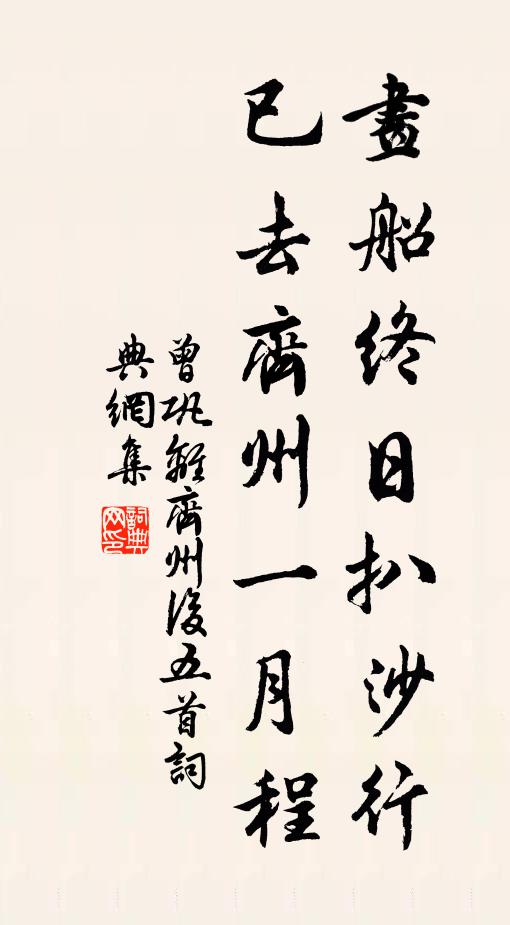 畫船終日扒沙行
已去齊州一月程
曾巩離齊州後五首詞
典網集
詞典网印